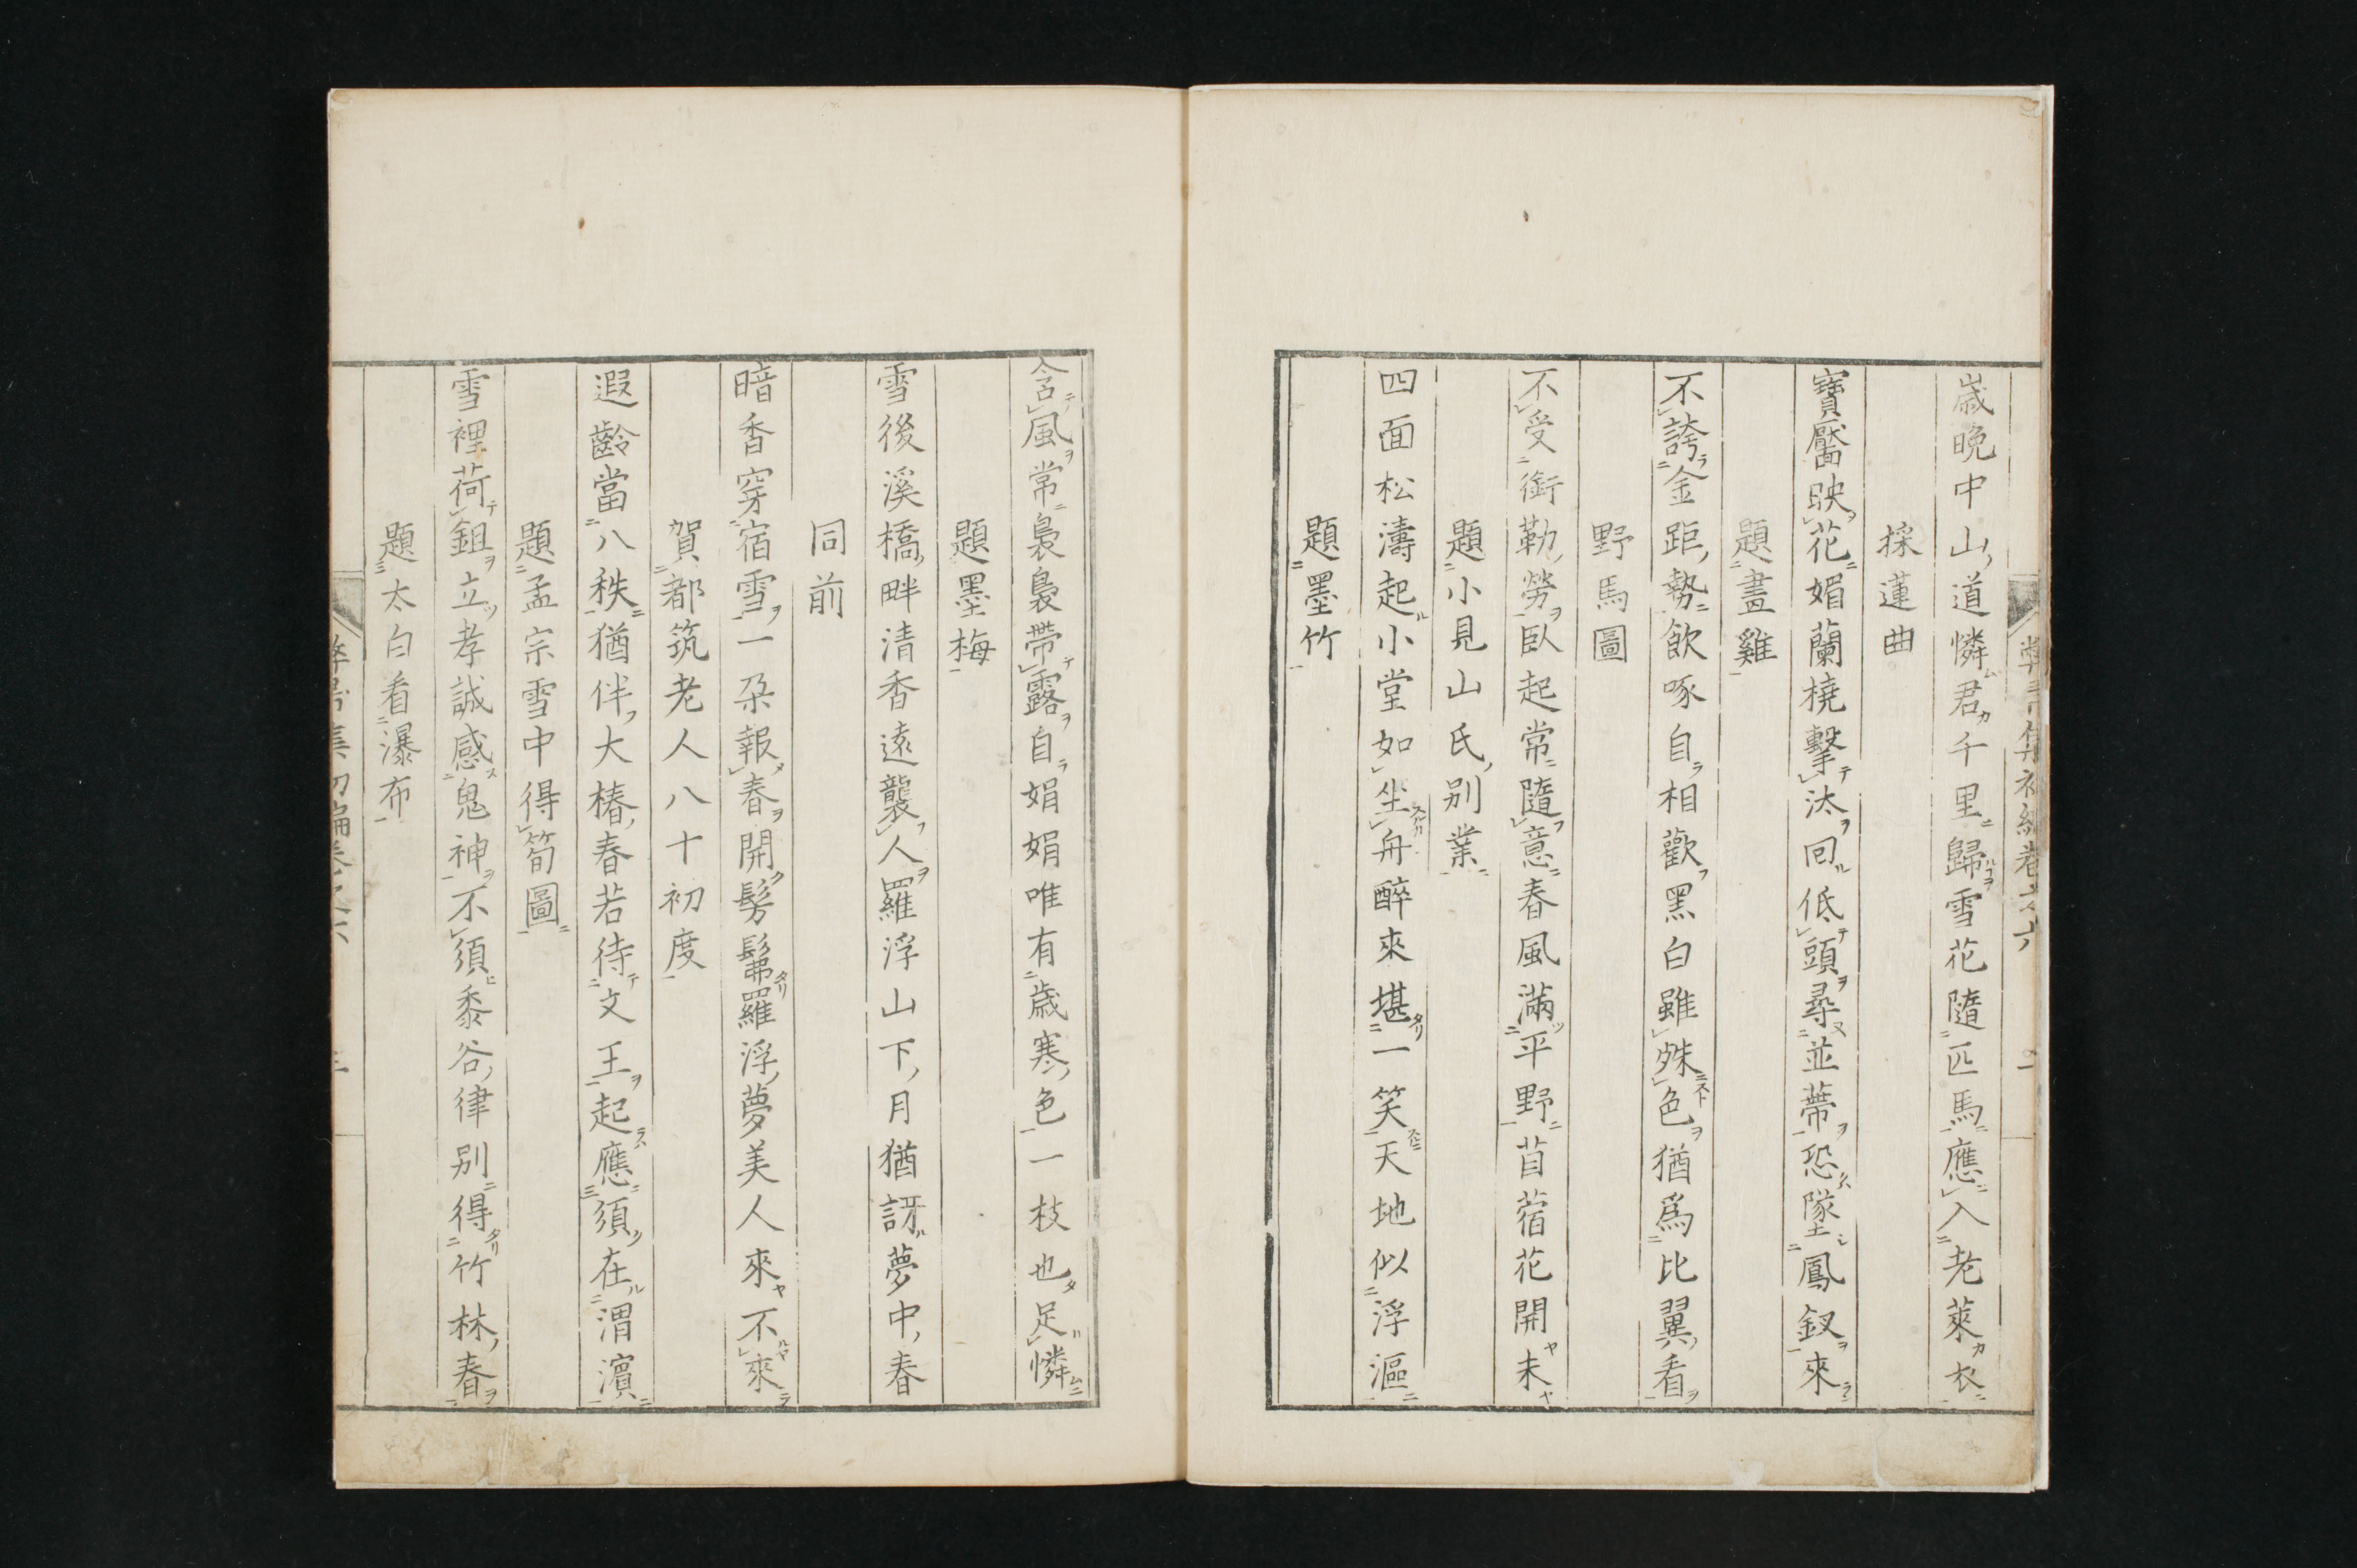 歳晩中山道憐君千里歸雪花隨匹馬應入老萊衣
採蓮曲
寶靨映花媚蘭橈擊汰回低頭尋並蔕恐墜鳳釵來
題畫雞
不誇金距勢飲啄自相歡黑白雖殊色猶爲比翼看
野馬圖
不受銜勒勞臥起常隨意春風滿平野苜蓿花開未
題小見山氏別業
四面松濤起小堂如坐舟醉來堪一笑天地似浮漚
題墨竹
含風常裊裊帶露自娟娟唯有歲寒色一枝也足憐
題墨梅
雪後溪橋畔清香遠襲人羅浮山下月猶訝夢中春
同前
暗香穿宿雪一朶報春開髣髴羅浮夢美人來不來
賀都筑老人八十初度
遐齡當八秩猶伴大椿春若待文王起應須在渭濱
題孟宗雪中得筍圖
雪裡荷鉏立孝誠感鬼神不須黍谷律別得竹林春
題太白看瀑布